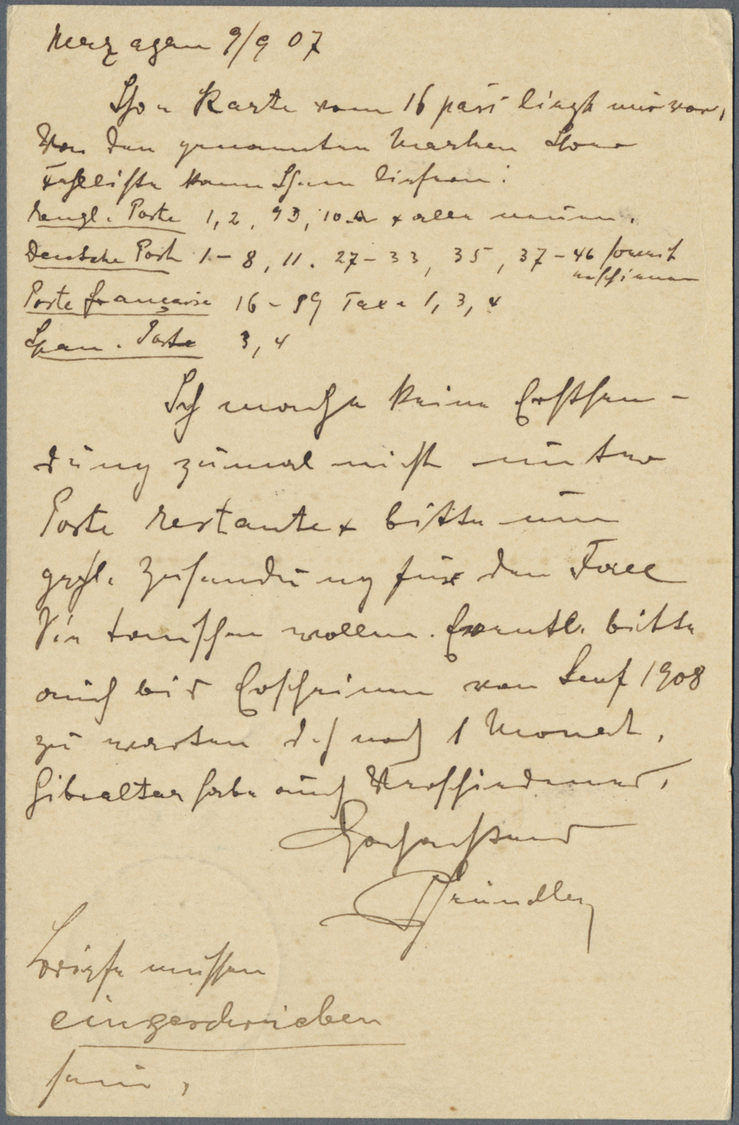 Mazagan 9/9 07
Ihre Karte vom 16 passé liegt mir vor,
Von den genannten Marken Ihrer
Fehlliste kann Ihnen liefern:
engl. Poste 1, 2, 9, 10
Deutsche Post 1-8, 11. 27-33, 35, 37-46 soweit
erschienen
Poste française 16-89 Taxe 1, 3, 4
Span. Poste 3, 4
Ich mache keine Erstsen-
dung zumal nicht unter
Poste restante & bitte um
gefl. Zusendung für den Fall
Sie tauschen wollen. Eventl. bitte
auch bis Erscheinen von Senf 1908
zu warten d.h. noch 1 Monat.
Gibraltar habe auch Verschiedenes,
Hochachtend
Gründler
Briefe müssen
eingeschrieben
sein,